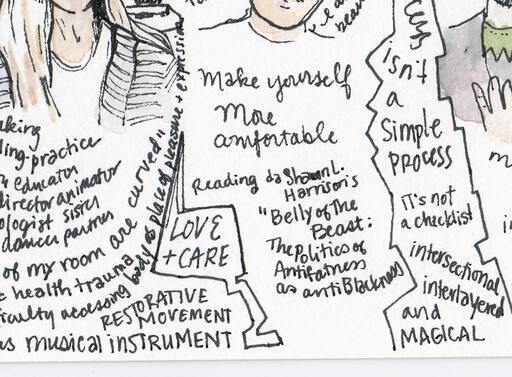 aking
ling-practice
educator
director animator
ologist sister
dancer partner
of my room are curved"
health trauma
iculty accessing body as place of pleasure + expression
as musical INSTRUMENT
RESTORATIVE
MOVEMENT
LOVE
+ CARE
Make yourself
More
comfortable
Reading da Shaun L.
Harrison's
"Belly of The
Beast:
The Politics of
Antifatness
as antiBlackness
isn't
a
Simple
PROCESS
IT'S not
a checklist
intersectional
interlayered
and
MAGICAL